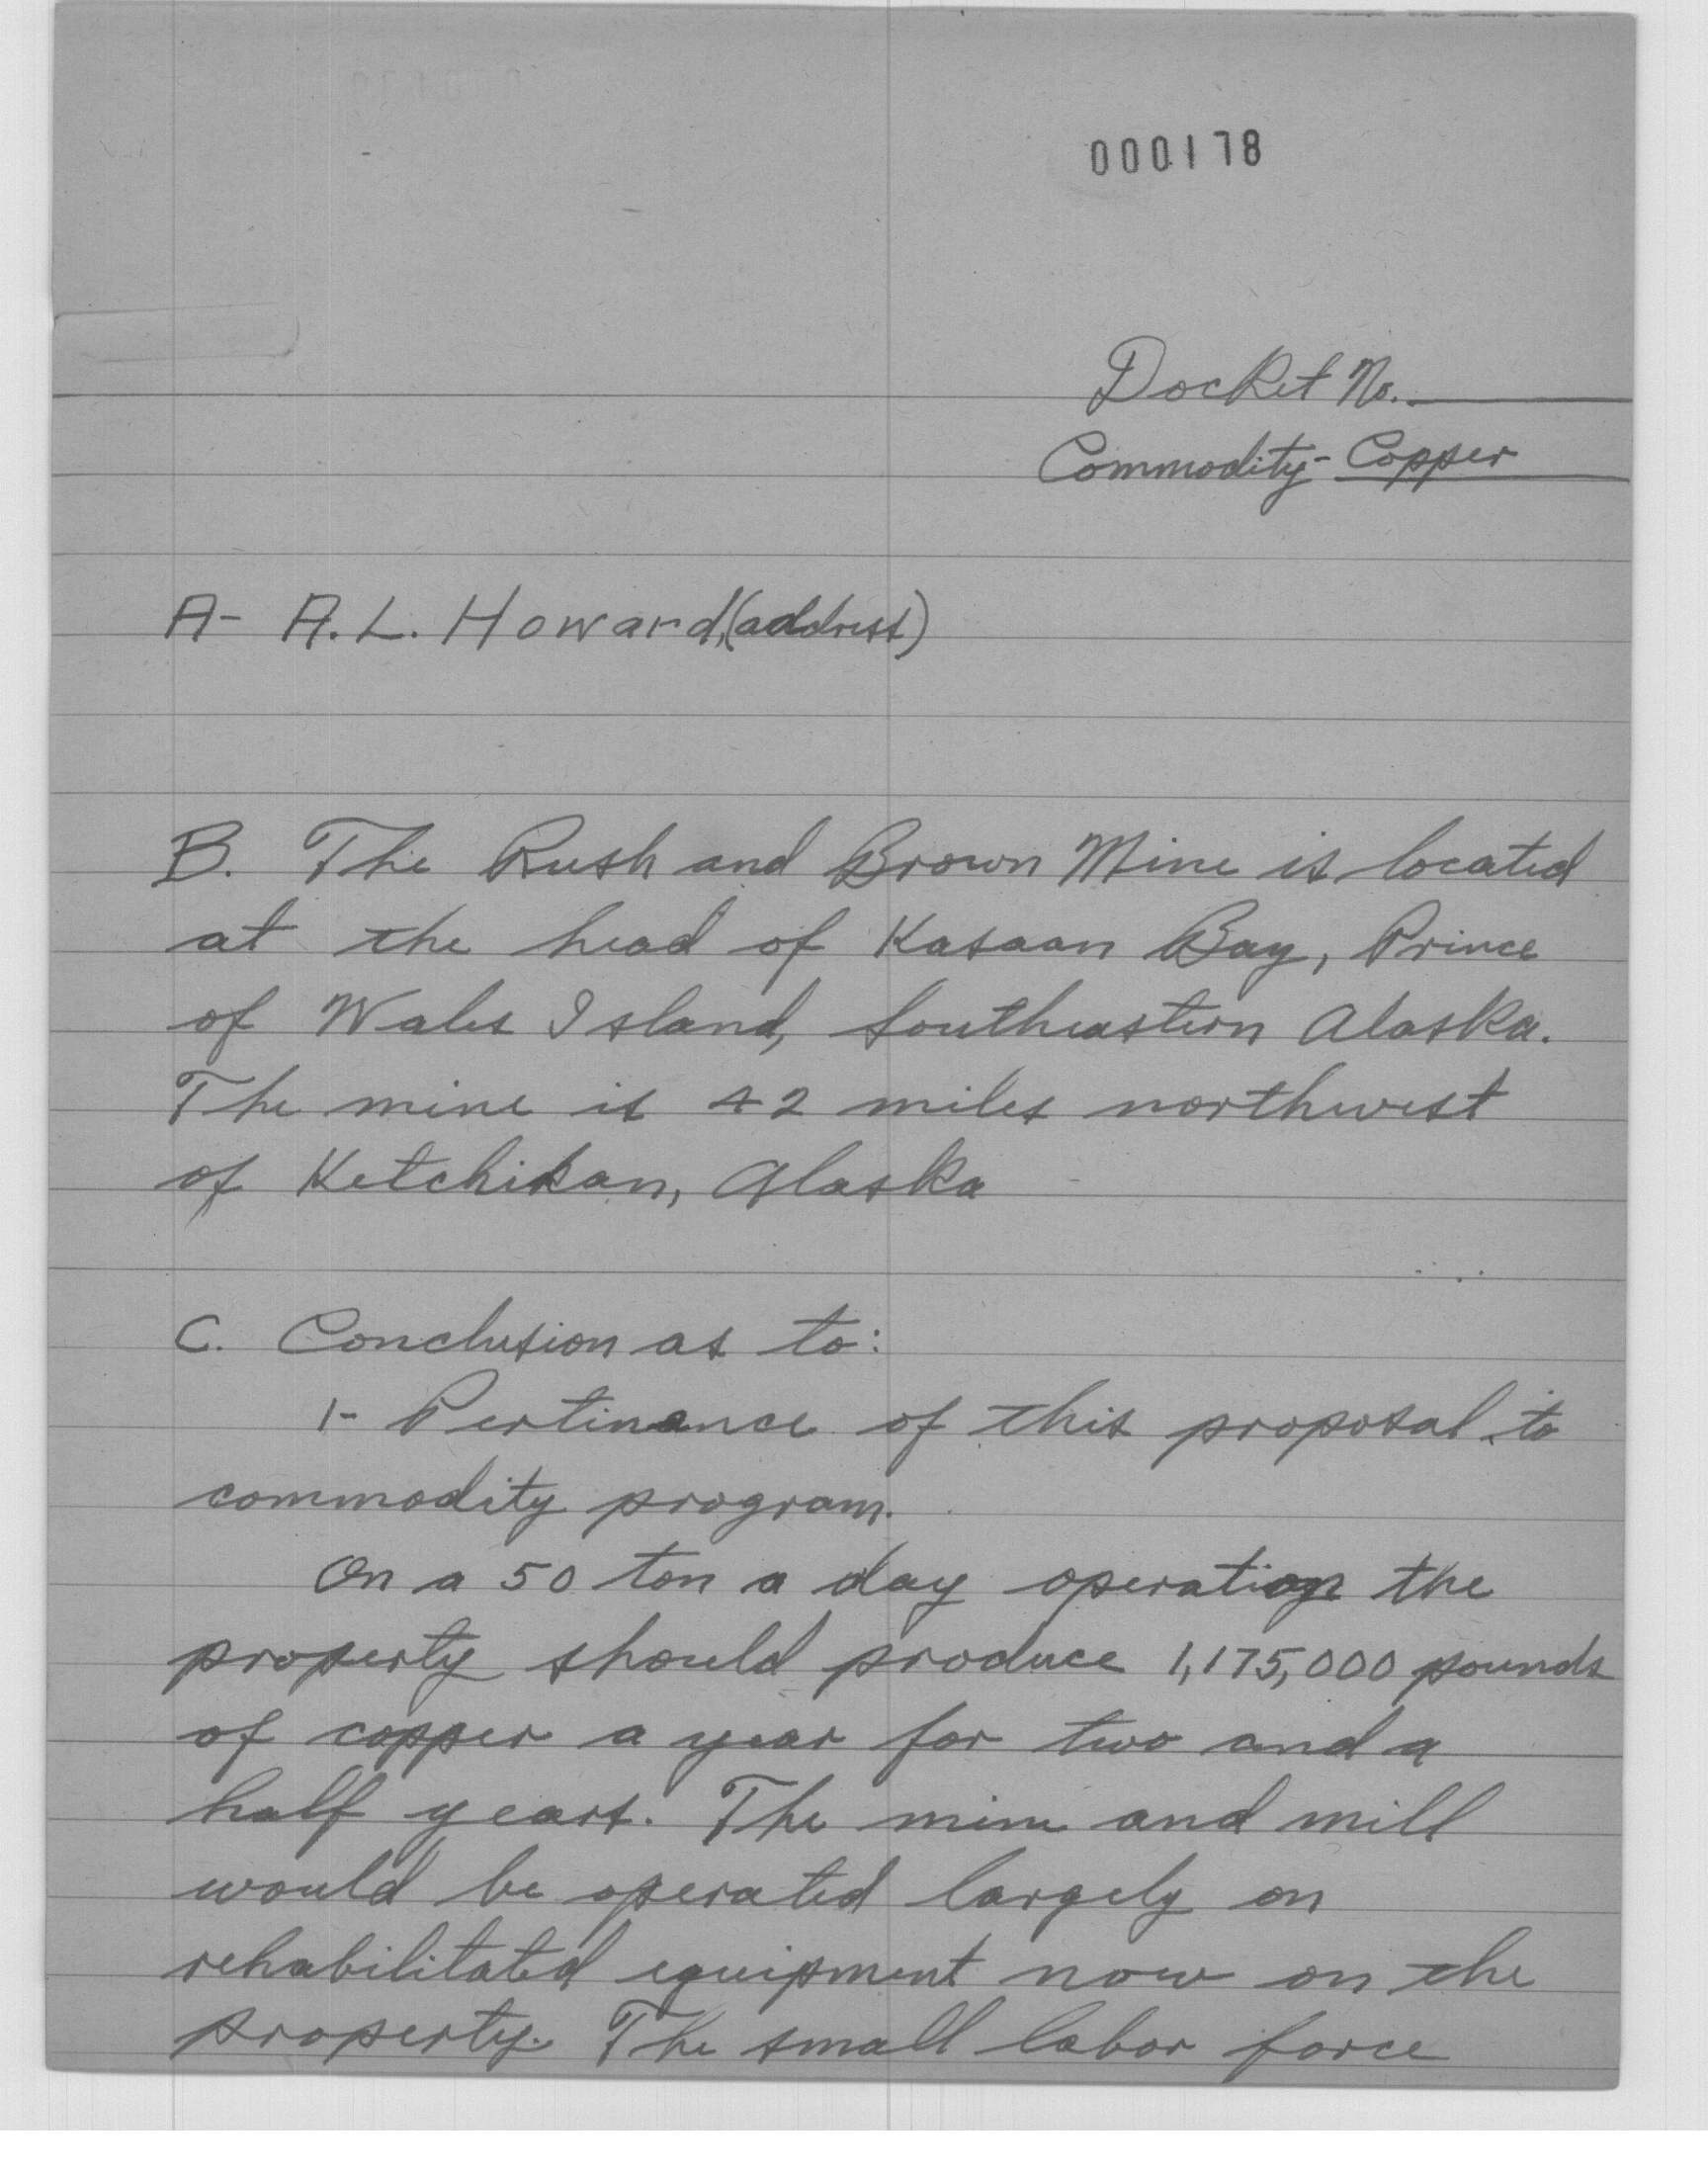 000178
Docket No.
Commodity - Copper
A - A. L. Howard, (address)
B. The Rush and Brown Mine is located
at the head of Kasaan Bay, Prince
of Wales Island, Southeastern Alaska.
The mine is 42 miles northwest
of Ketchikan, Alaska
C. Conclusion as to:
1- Pertinance of this proposal to
commodity program.
On a 50 ton a day operation the
property should produce 1,175,000 pounds
of copper a year for two and a
half years. The mine and mill
would be operated largely on
rehabilitated equipment now on the
property. The small labor force